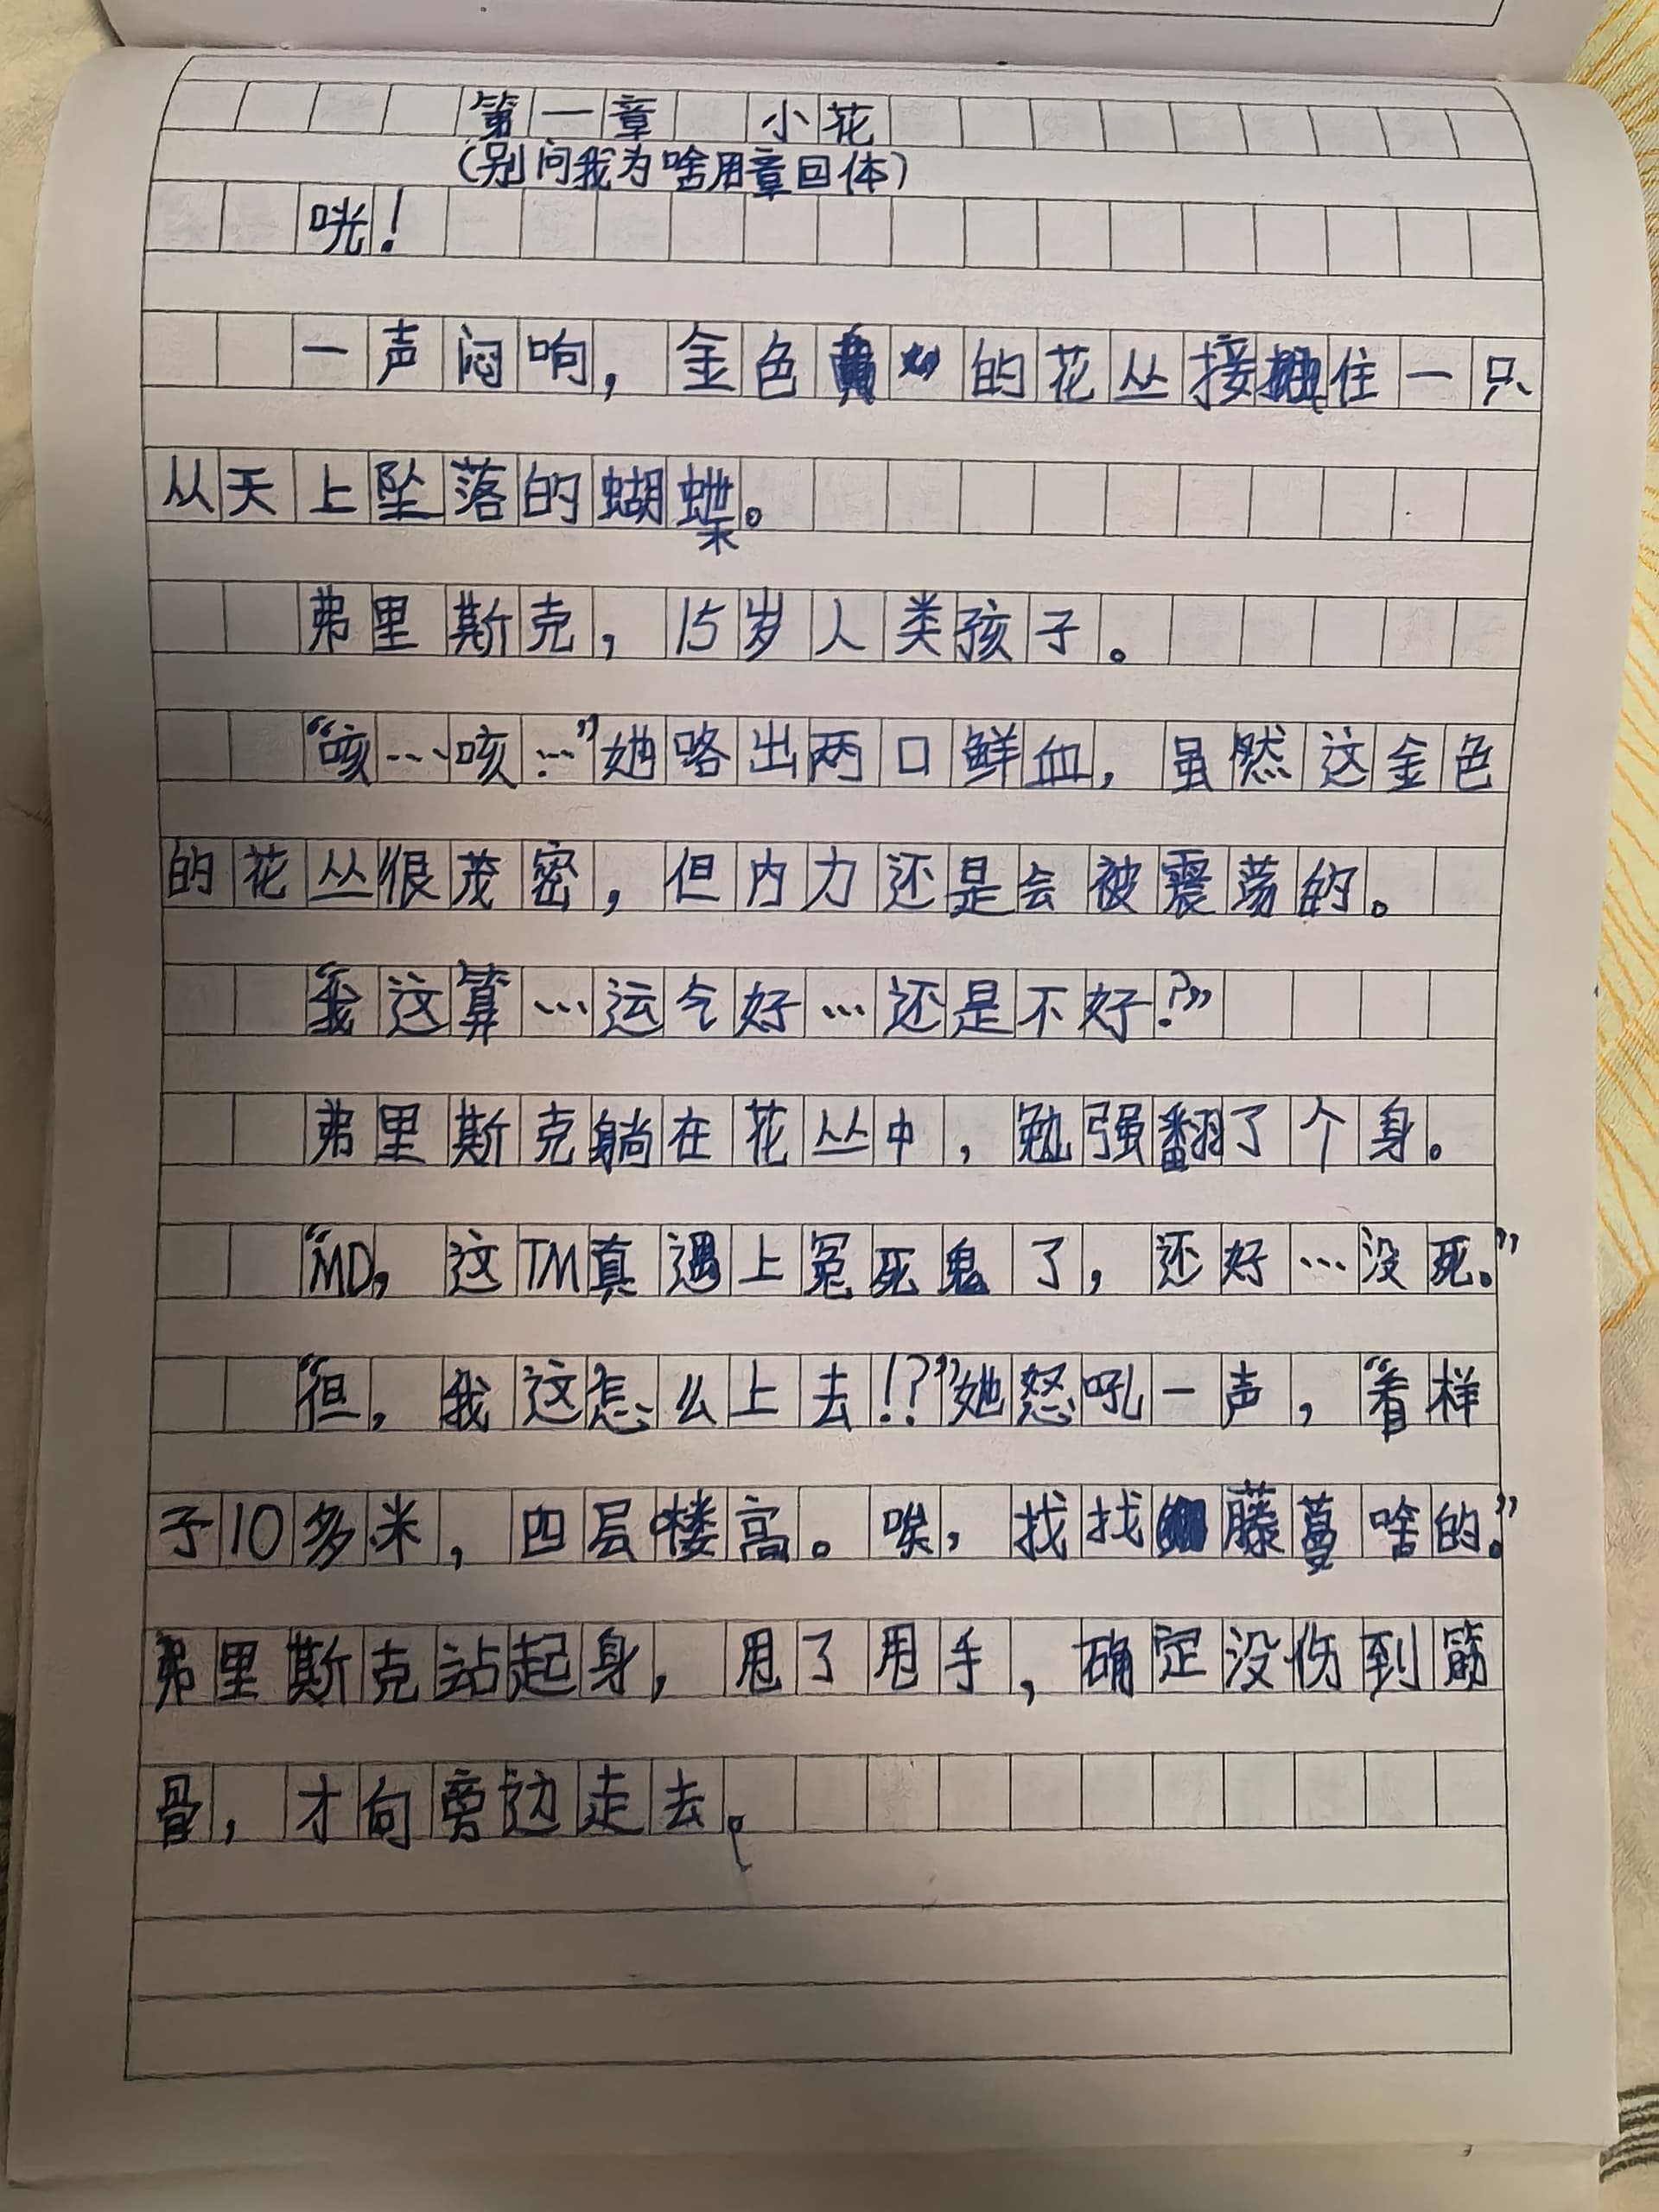 第一章 小花
(别问我为啥用章回体)
咣!
一声闷响,金色的花丛接住一只
从天上坠落的蝴蝶。
弗里斯克,15岁人类孩子。
“咳…咳…”她咯出两口鲜血,虽然这金色
的花丛很茂密,但内力还是会被震荡的。
“我这算…运气好…还是不好?”
弗里斯克躺在花丛中,勉强翻了个身。
“MD,这TM真遇上冤死鬼了,还好…没死。”
“但,我这怎么上去!?”她怒吼一声,“看样
子10多米,四层楼高。唉,找找藤蔓啥的。”
弗里斯克站起身,甩了甩手,确定没伤到筋
骨,才向旁边走去。